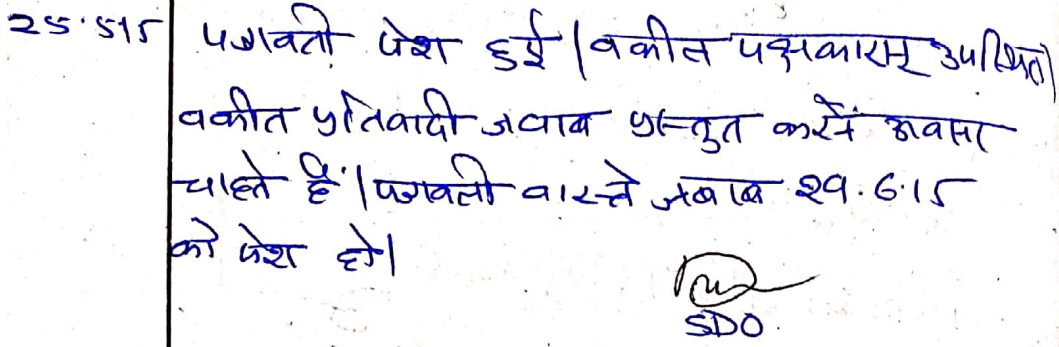 25.5.15 पत्रावली पेश हुई। वकील पक्षकारान् उपस्थित।
वकील प्रतिवादी जवाब प्रस्तुत करने अवसर
चाहते हैं। पत्रावली वास्ते जबाब 29.6.15
को पेश हो।
SDO.